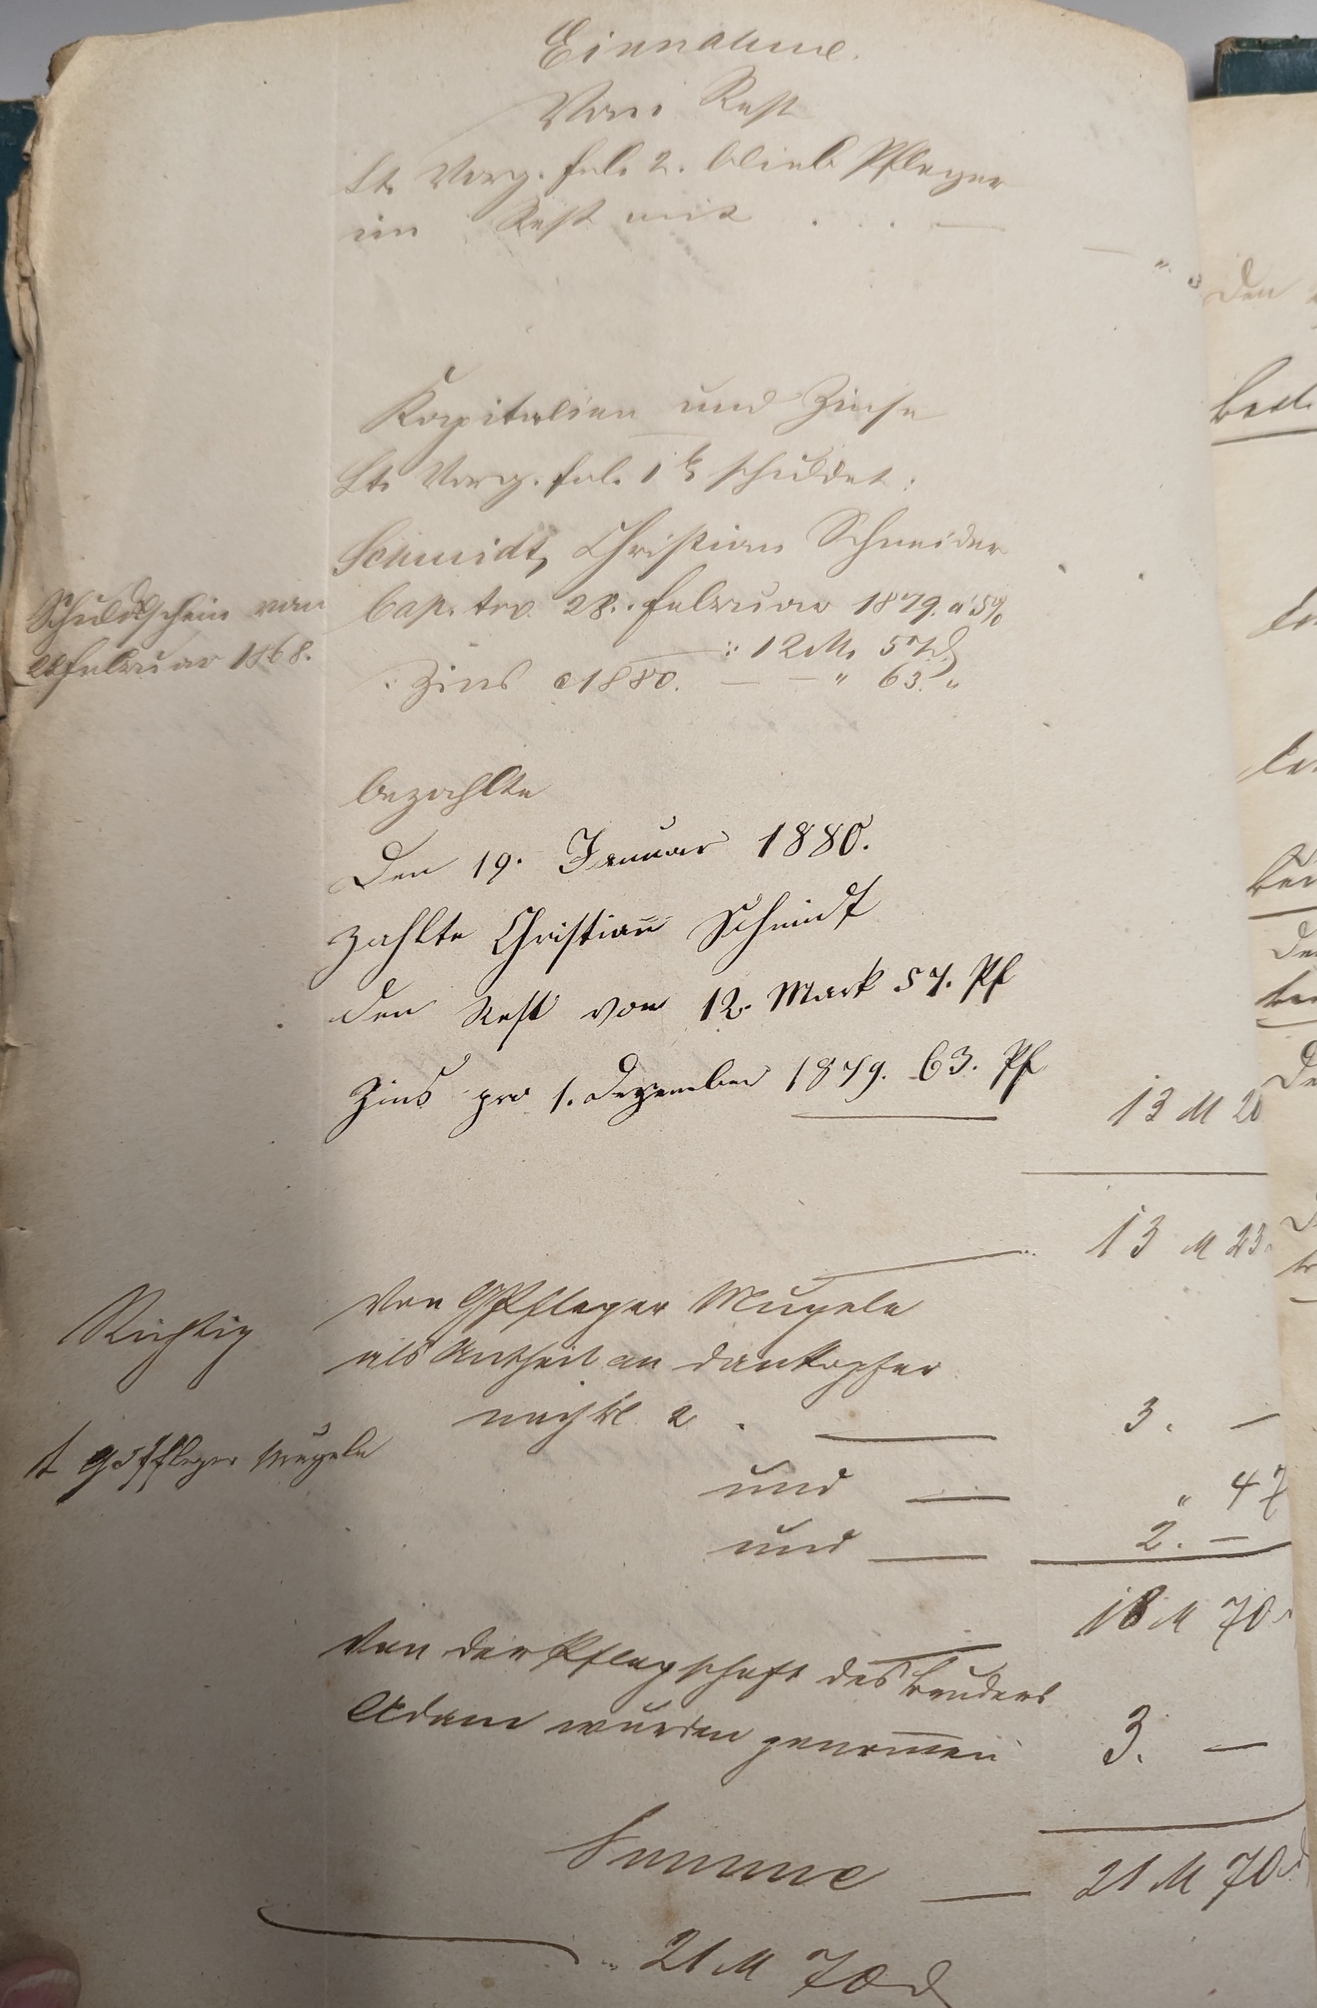 Einnahme.
Vom Rest
Lt. Vorg. fol. 2. blieb Pfleger
im Rest mit . . . —
— " "
Kapitalien und Zinse
Lt. Vorg. fol. 1 b schuldet:
Schmidt, Christian Schneider
Schuldschein vom
28 Februar 1868.
Cap. 28. Februar 1879. a 5%
: 12 M. 57 ₰
: Zins 1880. — — " 63. "
bezahlte
Den 19. Januar 1880.
zahlte Christian Schmidt
den Rest von 12. Mark 57. Pf
Zins pro 1. Dezember 1879. 63. Pf
13 M 20
13 M 23.
Richtig
Von GPfleger Mugele
als Antheil an
2 . — 3. —
t Pfleger Mugele
und — " 47
und — 2. —
18 M 70
Von der Pflegschaft des Bruders
Adam wurden genommen 3. —
Summe — 21 M 70 ₰
21 M 70 ₰
den